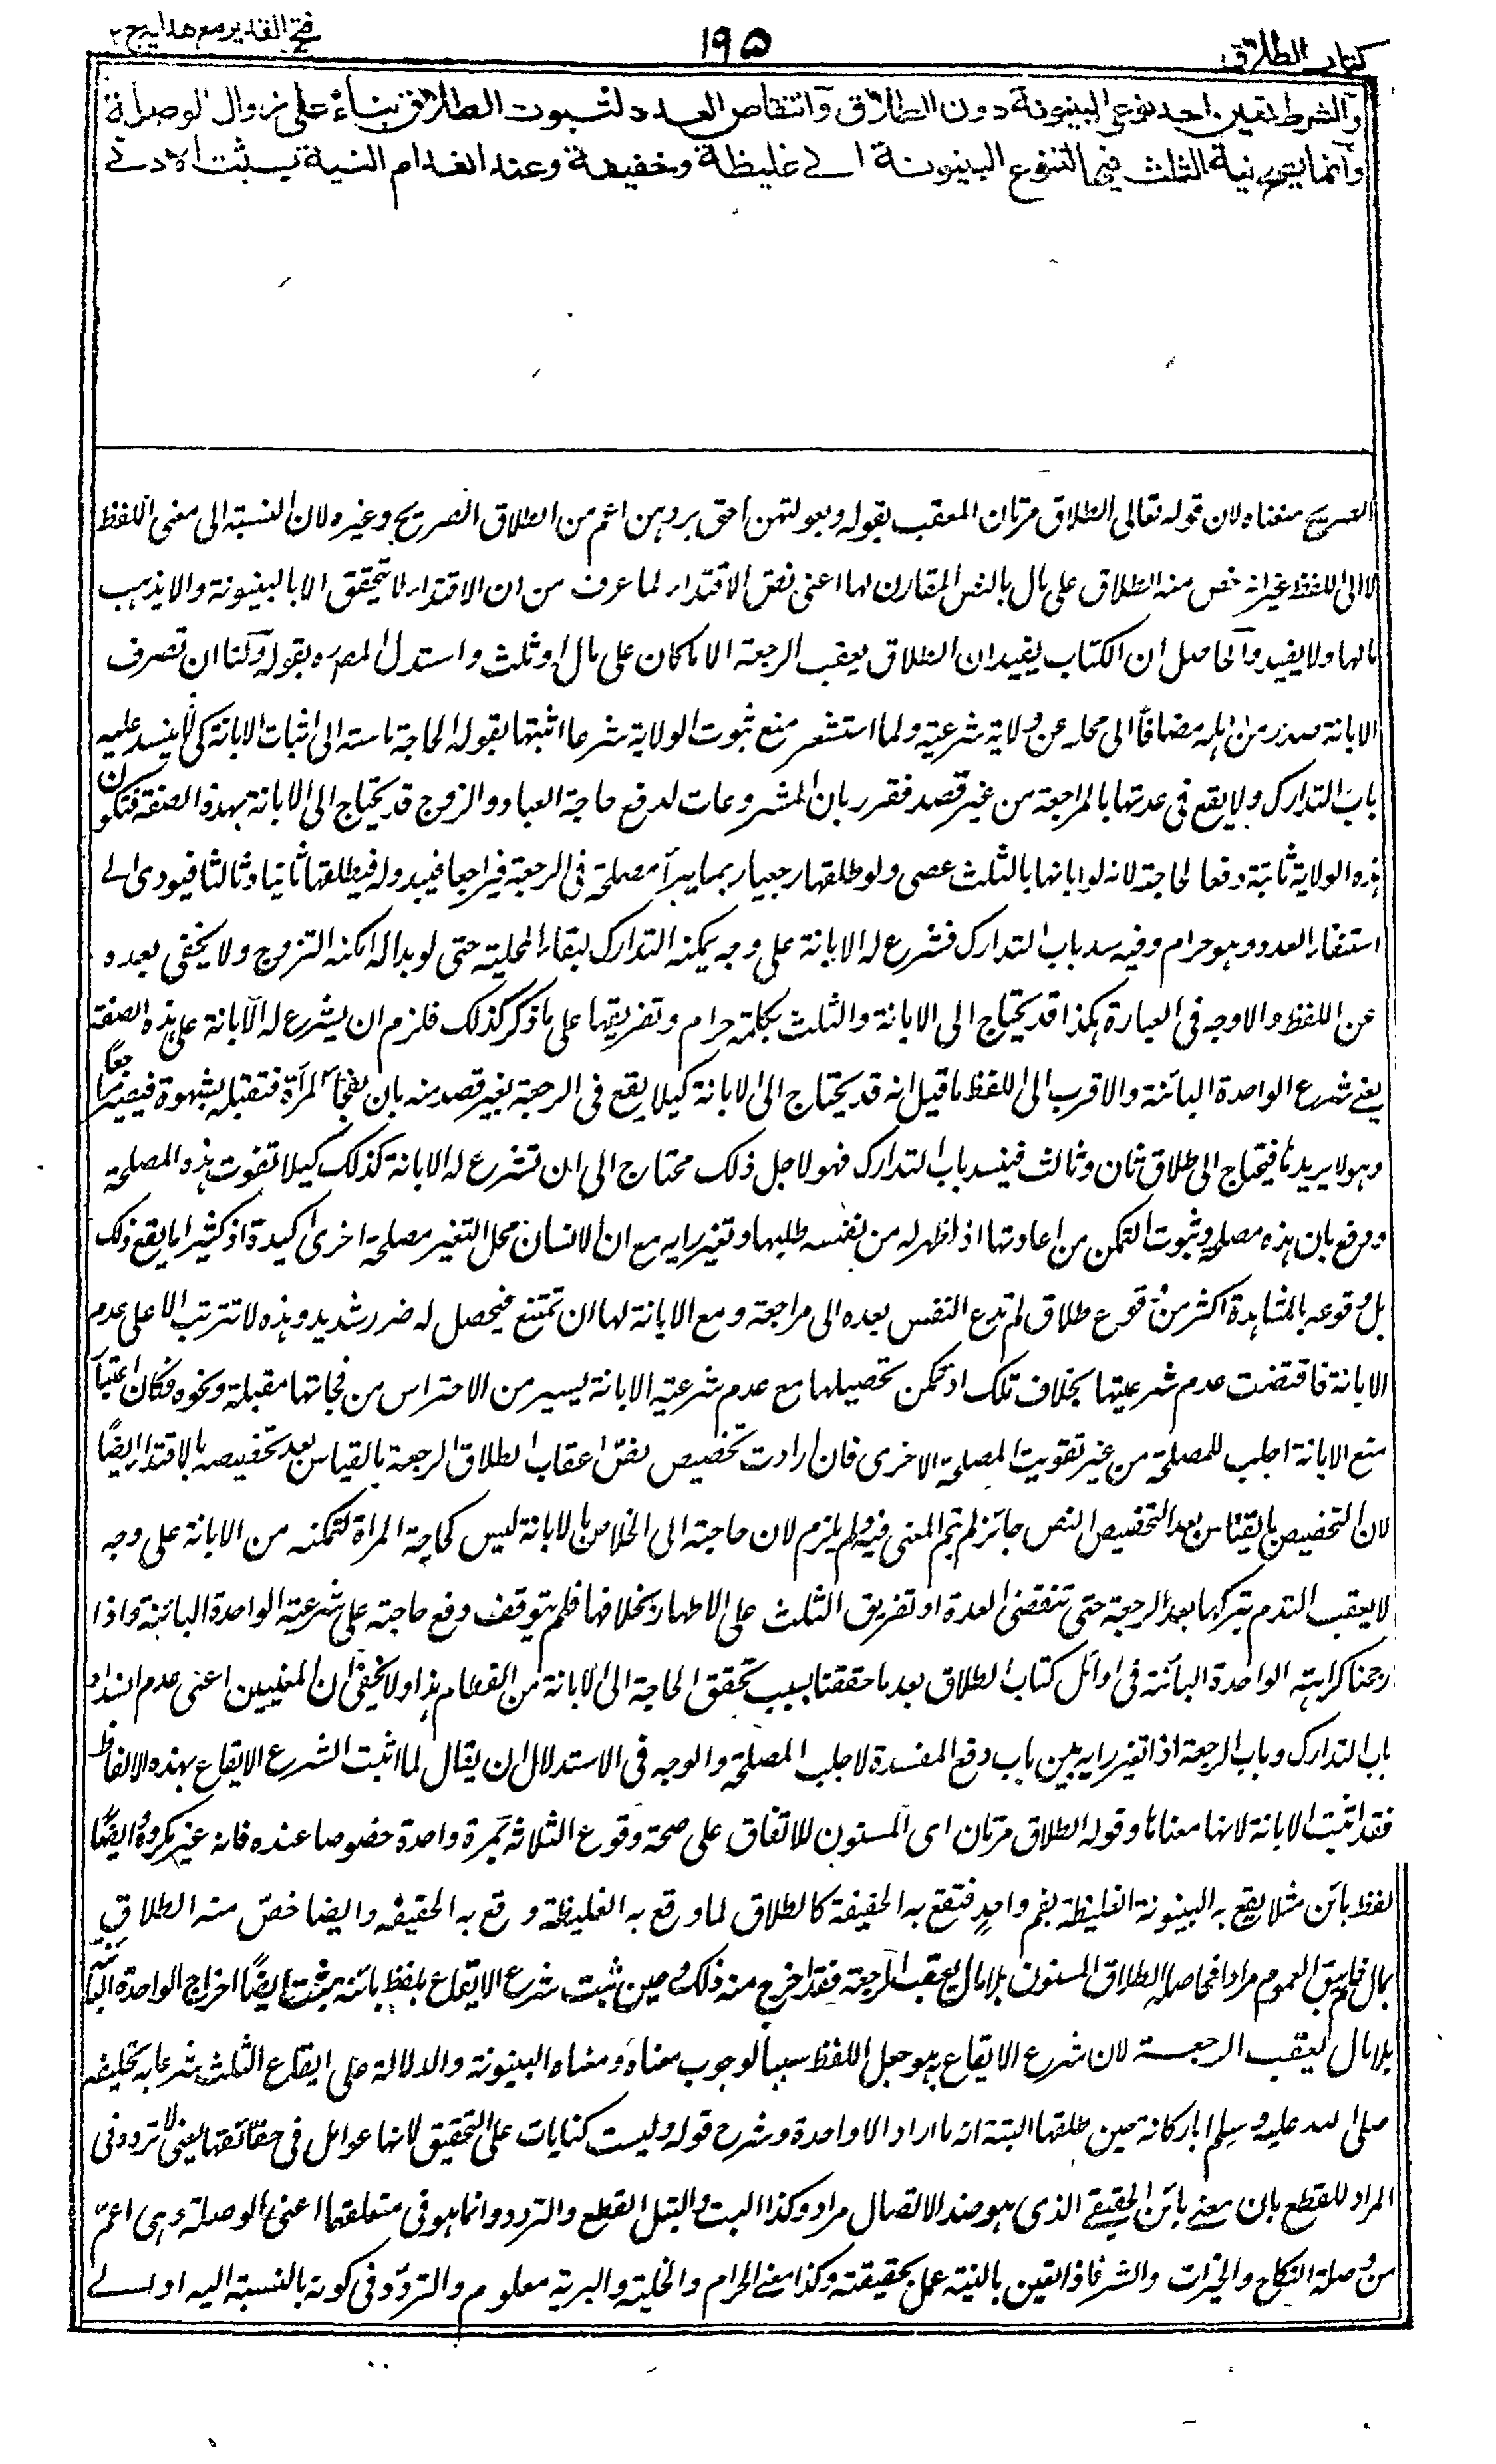 كتاب الطلاق
١٩٥
فتح القدير مع هدايہ ج ٢
والشرط تعين احد نوعي البينونة دون الطلاق وانتقاص العدد لثبوت الطلاق بناءً على زوال الوصلة
وانما يصح نية الثلث فيها لتنوع البينونة الے غليظة وخفيفة وعند انعدام النية يثبت الادنے
الصريح معناه لان قوله تعالى الطلاق مرتان المعقب بقوله وبعولتهن احق بردهن اعم من الطلاق الصريح وغيره لان النسبة الى معنى اللفظ
لا الى اللفظ غير انه خص منه الطلاق على مال بالنص المقارن لها اعنى نص الافتداء لما عرف من ان الافتداء لا يتحقق الا بالبينونة والا يذهب
مالها ولا يفيد والحاصل ان الكتاب يفيد ان الطلاق يعقب الرجعة الا ما كان على مال او ثلث واستدل المصره بقوله ولنا ان تصرف
الابانة صدر من اهله مضافاً الى محله عن ولاية شرعية ولما استشعر منع ثبوت الولاية شرعا اثبتها بقوله الحاجة ماسة الى اثبات الابانة كى لا ينسد عليه
باب التدارك ولا يقع فى عدتها بالمراجعة من غير قصد فقرر بان المشروعات لدفع حاجة العباد والزوج قد يحتاج الى الابانة بهذه الصفة فتكون
هذه الولاية ثابتة دفعا لحاجته لانه لو ابانها بالثلث عصى ولو طلقها رجعيا ربما يبدأ مصلحة فى الرجعة فيراجعها فيبدو له فيطلقها ثانيا وثالثا فيودى الے
استنفاد العدد وهو حرام وفيه سد باب التدارك فشرع له الابانة على وجه يمكنه التدارك لبقاء المحلية حتى لو بدا له امكنه التزوج ولا يخفى بعده
عن اللفظ والاوجه فى العبارة هكذا قد يحتاج الى الابانة والثلث بكلمة حرام وتفريقها على ما ذكر كذلك فلزم ان يشرع له الابانة على هذه الصفة
يعنے شرع الواحدة البائنة والاقرب الى اللفظ ما قيل انه قد يحتاج الى الابانة كيلا يقع فى الرجعة بغير قصد منه بان تفجأه المرأة فتقبله بشهوة فيصير مراجعا
وهو لا يريدها فيحتاج الى طلاق ثان وثالث فينسد باب التدارك فهو لاجل ذلك محتاج الى ان تشرع له الابانة كذلك كيلا تفوت هذه المصلحة
ودفع بان هذه مصلحة وثبوت التمكن من اعادتها اذا ظهر له من نفسه طلبها وتغير رايه مع ان الانسان محل التغير مصلحة اخرى اكيدة اذ كثيرا ما يقع ذلك
بل وقوعه بالمشاهدة اكثر من وقوع طلاق لم تدع النفس بعده الى مراجعة ومع الابانة لها ان تمتنع فيحصل له ضرر شديد وهذه لا تترتب الا على عدم
الابانة فاقتضت عدم شرعيتها بخلاف تلك اذ تمكن تحصيلها مع عدم شرعية الابانة بيسير من الاحتراس من فجاتها مقبلة ونحوه فكان اعتبار
منع الابانة اجلب للمصلحة من غير تفويت المصلحة الاخرى فان ارادت تخصيص نص اعقاب الطلاق الرجعة بالقياس بعد تخصيصه بالافتداء ايضًا
لان التخصيص بالقياس بعد التخصيص بالنص جائز لم يتم المعنى فيه ولم يلزم لان حاجته الى الخلاص بالابانة ليس كحاجة المرأة لتمكنه من الابانة على وجه
لا يعقب الندم بتركها بعد الرجعة حتى تنقضى العدة او تفريق الثلث على الاطهار بخلافها فلم يتوقف دفع حاجته على شرعية الواحدة البائنة واذا
رجحنا كراهته الواحدة البائنة فى اوائل كتاب الطلاق بعد ما حققنا بسبب تحقق الحاجة الى الابانة من الفطام هذا ولا يخفى ان المعنيين اعنى عدم انسداد
باب التدارك وباب الرجعة اذا تغير رايه بين باب دفع المفسدة لا جلب المصلحة والوجه فى الاستدلال ان يقال لما اثبت الشرع الايقاع بهذه الالفاظ
فقد اثبت الابانة لانها معناها وقوله الطلاق مرتان اى المسنون للاتفاق على صحة وقوع الثلاثة بمرة واحدة خصوصا عنده فانه غير مكروه ايضًا
لفظ بائن مثلا يقع به البينونة الغليظة بفم واحد فتقع به الخفيفة كالطلاق لما وقع به الغليظة وقع به الخفيفة وايضا خص منه الطلاق
بمال فلم يبق العموم مرادا فحاصله الطلاق المسنون بلا مال يعقب الرجعة فقد اخرج منه ذلك وحين ثبت شرع الايقاع بلفظ بائنة ثبت ايضًا اخراج الواحدة البائنة
بلا مال ليعقب الرجعة لان شرع الايقاع به هو جعل اللفظ سببا لوجوب معناه ومعناه البينونة والدلالة على ايقاع الثلث شرعا به تحليفه
صلى الله عليه وسلم لركانة حين طلقها البتة انه ما اراد الا واحدة وشرح قوله وليست كنايات على التحقيق لانها عوامل فى حقائقها يعنى لا تردد فى
المراد للقطع بان معنے بائن الحقيقے الذى هو ضد الاتصال مراد وكذا البت والبتل القطع والتردد وانما هو فى متعلقها اعنى الوصلة وهى اعم
من وصلة النكاح والخيرات والشر فاذا تعين بالنية عمل بحقيقته وكذا معنے الحرام والخلية والبرية معلوم والتردد فى كونه بالنسبة اليه او الے